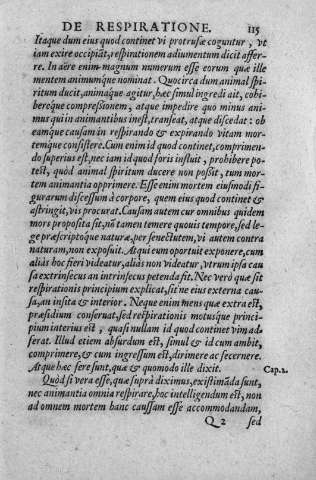 DE RESPIRATIONE. 115
Itaque dum eius quod continet vi protrusæ coguntur, vt
iam exire occipiãt, respirationem adiumentum dicit affer-
re. In aëre enim magnum numerum esse eorum quæ ille
mentem animumque nominat. Quocirca dum animal spi-
ritum ducit, animaque agitur, hæc simul ingredi ait, cohi-
bereque compressionem, atque impedire quo minus ani-
mus qui in animantibus inest, transeat, atque discedat: ob
eamque causam in respirando & expirando vitam mor-
temque consistere. Cum enim id quod continet, comprimen-
do superius est, nec iam id quod foris influit, prohibere po-
test, quòd animal spiritum ducere non possit, tum mor-
tem animantia opprimere. Esse enim mortem eiusmodi fi-
gurarum discessum à corpore, quem eius quod continet &
astringit, vis procurat. Causam autem cur omnibus quidem
mors proposita sit, nõ tamen temere quouis tempore, sed le-
ge præscriptoque naturæ, per senectutem, vi autem contra
naturam, non exposuit. Atqui eum oportuit exponere, cum
aliàs hoc fieri videatur, aliàs non videatur, vtrum ipsa cau
sa extrinsecus an intrinsecus petenda sit. Nec verò quæ sit
respirationis principium explicat, sit ne eius externa cau-
sa, an insita & interior. Neque enim mens quæ extra est,
præsidium conseruat, sed respirationis motusque princi-
pium interius est, quasi nullam id quod continet vim ad-
ferat. Illud etiam absurdum est, simul & id cum ambit,
comprimere, & cum ingressum est, dirimere ac secernere.
Atque hæc fere sunt, quæ & quomodo ille dixit. Cap.2.
Quòd si vera esse, quæ suprà diximus, existimãda sunt,
nec animantia omnia respirare, hoc intelligendum est, non
ad omnem mortem hanc caussam esse accommodandam,
Q 2 sed